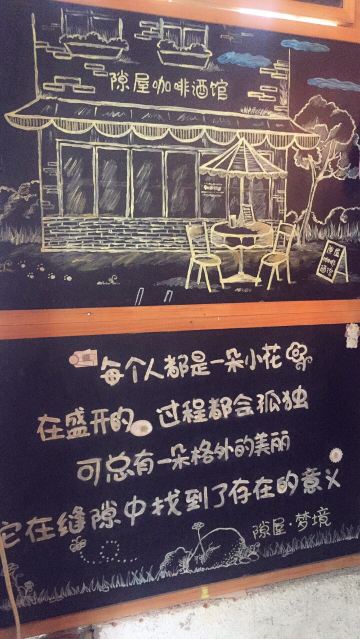 隙屋咖啡酒馆
每个人都是一朵小花
在盛开的 过程都会孤独
可总有一朵格外的美丽
它在缝隙中找到了存在的意义
隙屋·梦境